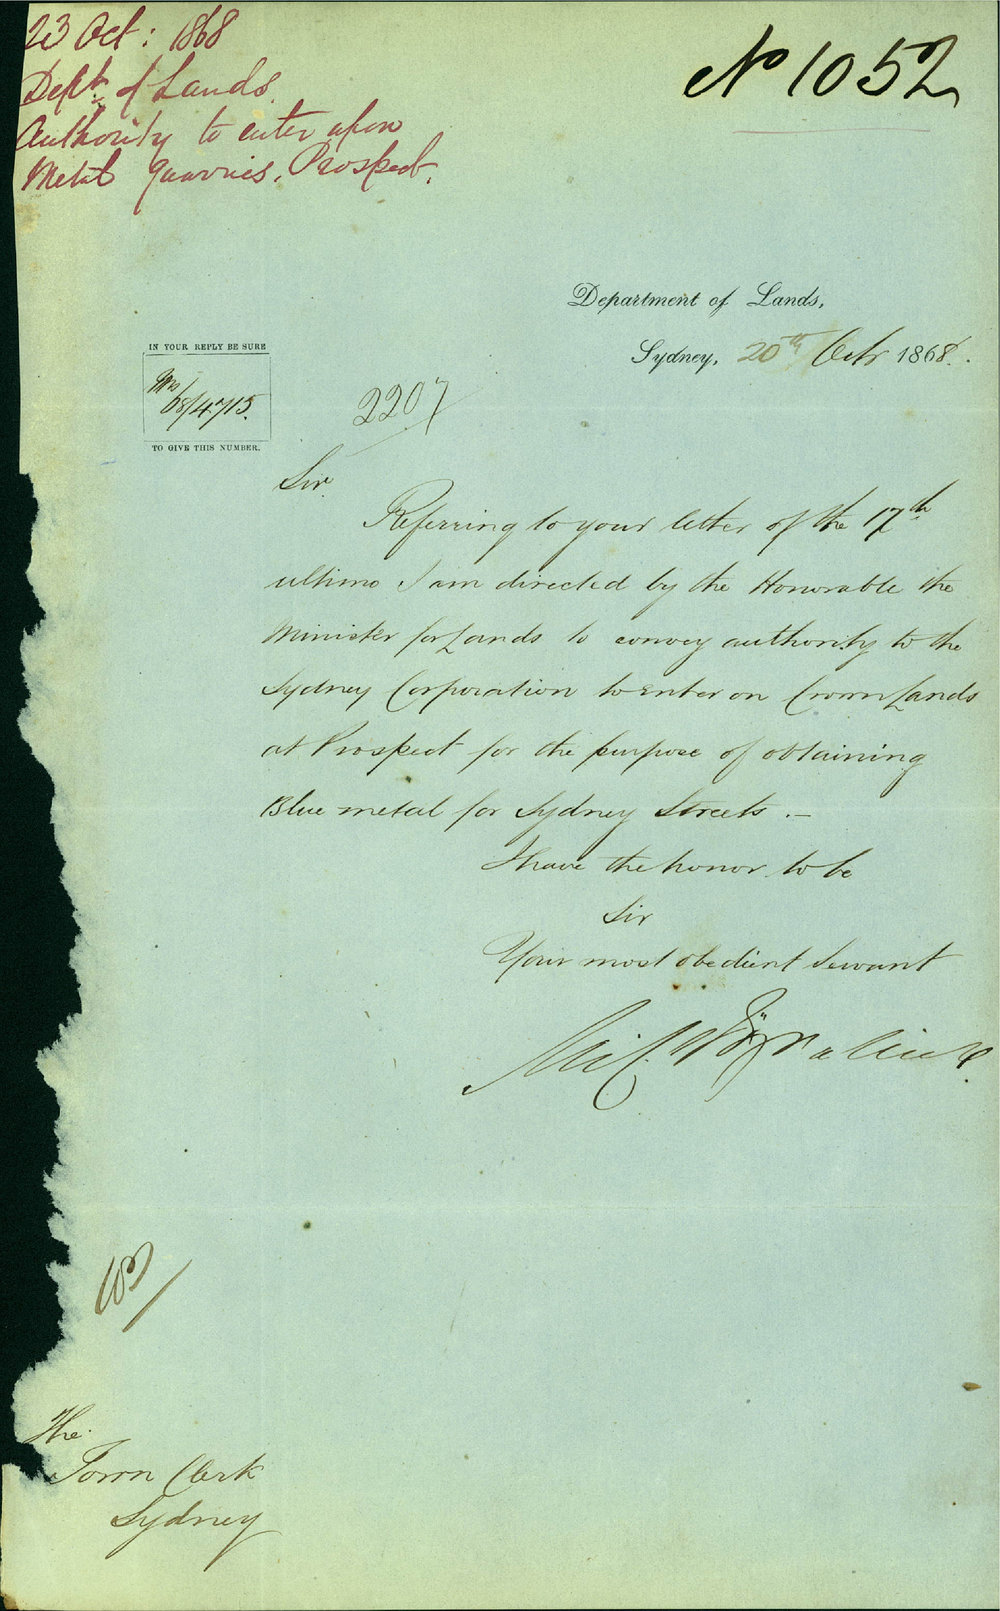 23 Oct: 1868
Dept. of Lands
Authority to enter upon
Metal quarries, Prospect.
No 1052
Department of Lands,
Sydney, 20th Octr 1868.
IN YOUR REPLY BE SURE
68/4715.
TO GIVE THIS NUMBER.
2207
Sir
Referring to your letter of the 17th
ultimo I am directed by the Honorable the
Minister for Lands to convey authority to the
Sydney Corporation to enter on Crown Lands
at Prospect for the purpose of obtaining
Blue metal for Sydney Streets. —
I have the honor to be
Sir
Your most obedient Servant
The
Town Clerk
Sydney